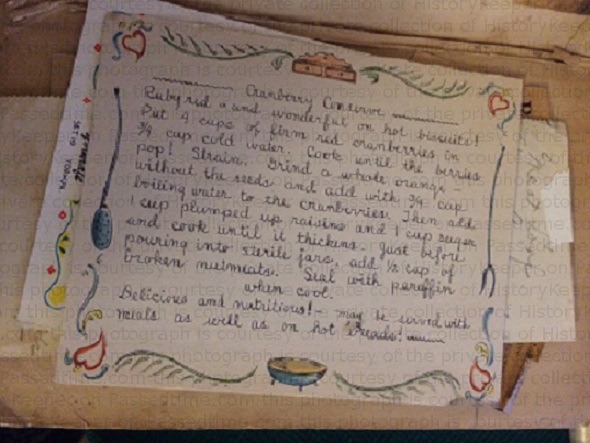 Cranberry Conserve
Ruby red and wonderful on hot biscuits!
Put 4 cups of firm red cranberries in
3/4 cup cold water. Cook until the berries
pop! Strain. Grind a whole orange -
without the seeds and add with 3/4 cup
boiling water to the cranberries. Then add
1 cup plumped up raisins and 1 cup sugar
and cook until it thickens. Just before
pouring into sterile jars, add 1/2 cup of
broken nutmeats. Seal with paraffin
when cool.
Delicious and nutritious! - may be served with
meals as well as on hot breads!